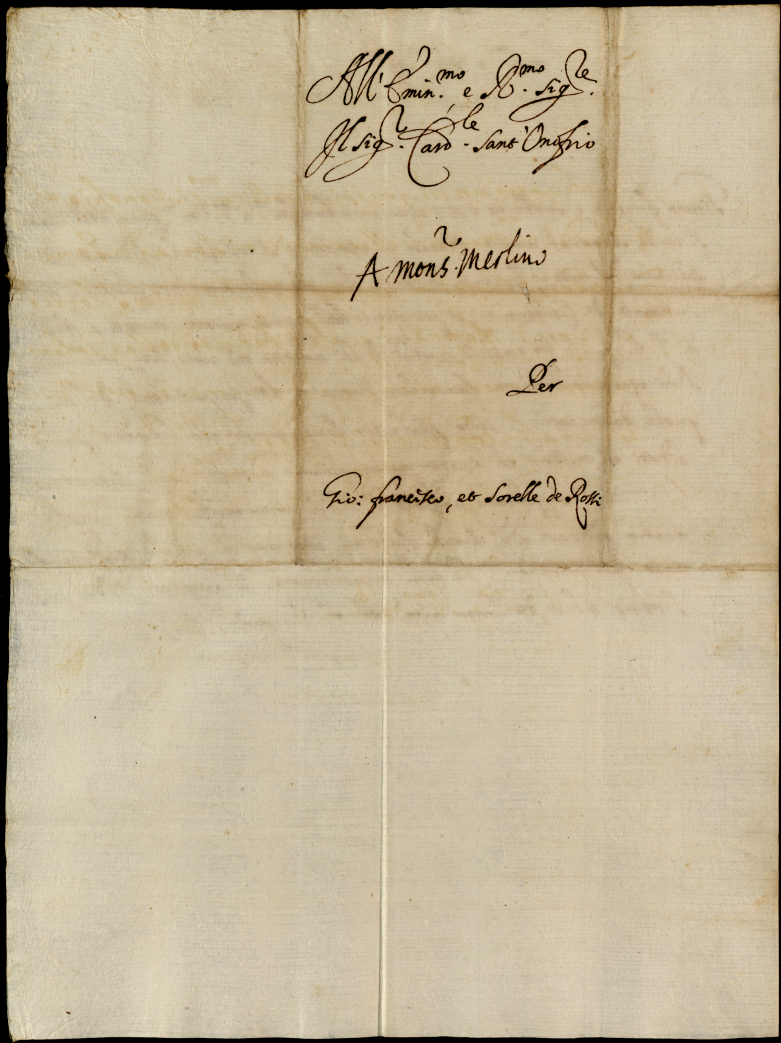 All' Emin.mo e R.mo sig.re
Il sig.r Card.le Sant' Onofrio
A Mons.r Merlino
Per
Gio: francesco, et Sorelle de Rossi